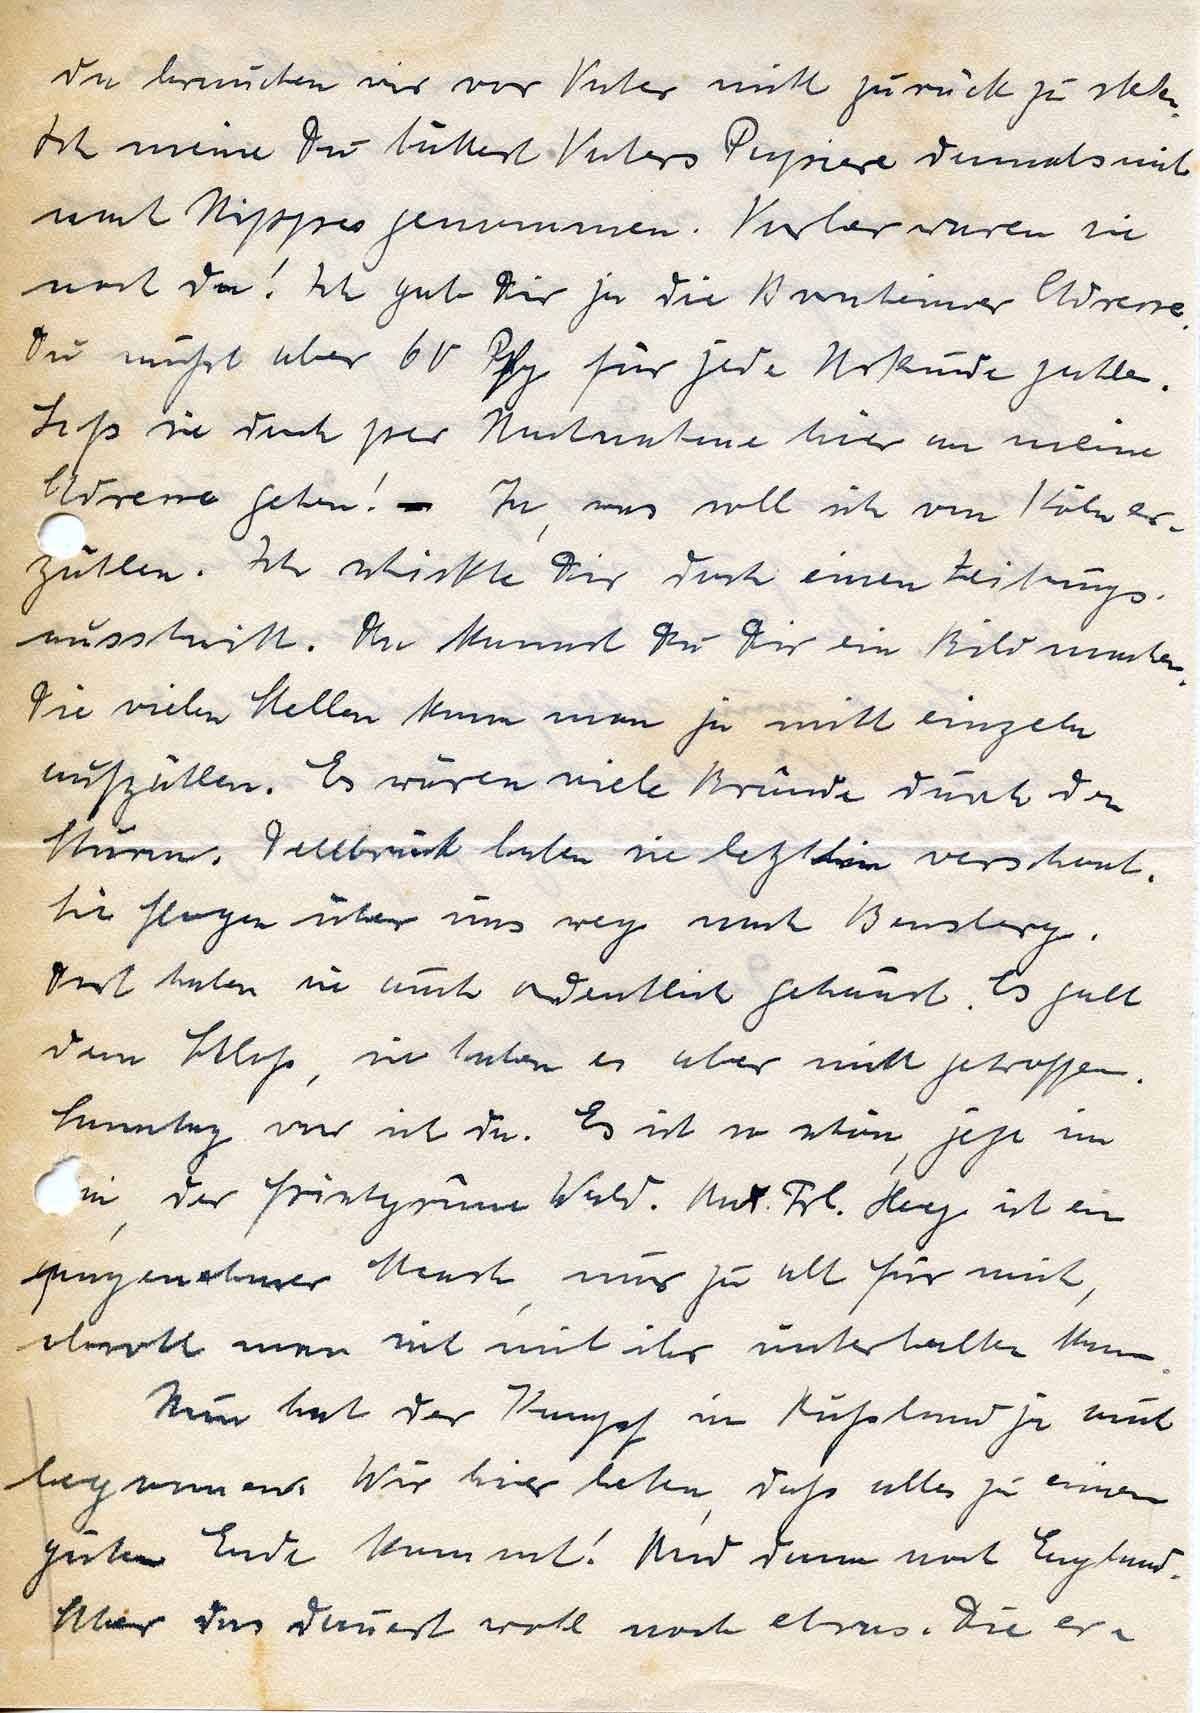 da brauchen wir vor Vater nicht zurück zu stehen.
Ich meine Du hättest Vaters Papiere damals mit
nach Nippes genommen. Vorher waren sie
noch da! Ich gab Dir ja die Adresse.
Du mußt aber 60 Pfg für jede Urkunde zahlen.
Laß sie doch per Nachnahme hier an meine
Adresse gehen! – Ja, was soll ich von Köln er-
zählen. Ich schickte Dir doch einen Zeitungs-
ausschnitt. Da kannst Du Dir ein Bild machen.
Die vielen Stellen kann man ja nicht einzeln
aufzählen. Es wären viele Brände durch den
Sturm. Dellbrück haben sie letzthin verschont.
Sie flogen über uns weg nach Bensberg.
Dort haben sie auch ordentlich gehaust. Es galt
dem Schloß, sie haben es aber nicht getroffen.
Sonntag war ich da. Es ist so schön, jetzt im
der frischgrüne Wald. Frl. Heeg ist ein
angenehmer Mensch, nur zu alt für mich,
obwohl man sich mit ihr unterhalten kann.
Nun hat der Kampf in Rußland ja auch
begonnen. Wir hier beten, daß alles zu einem
guten Ende kommt! Und dann noch England.
Aber das dauert wohl noch etwas. Die er-